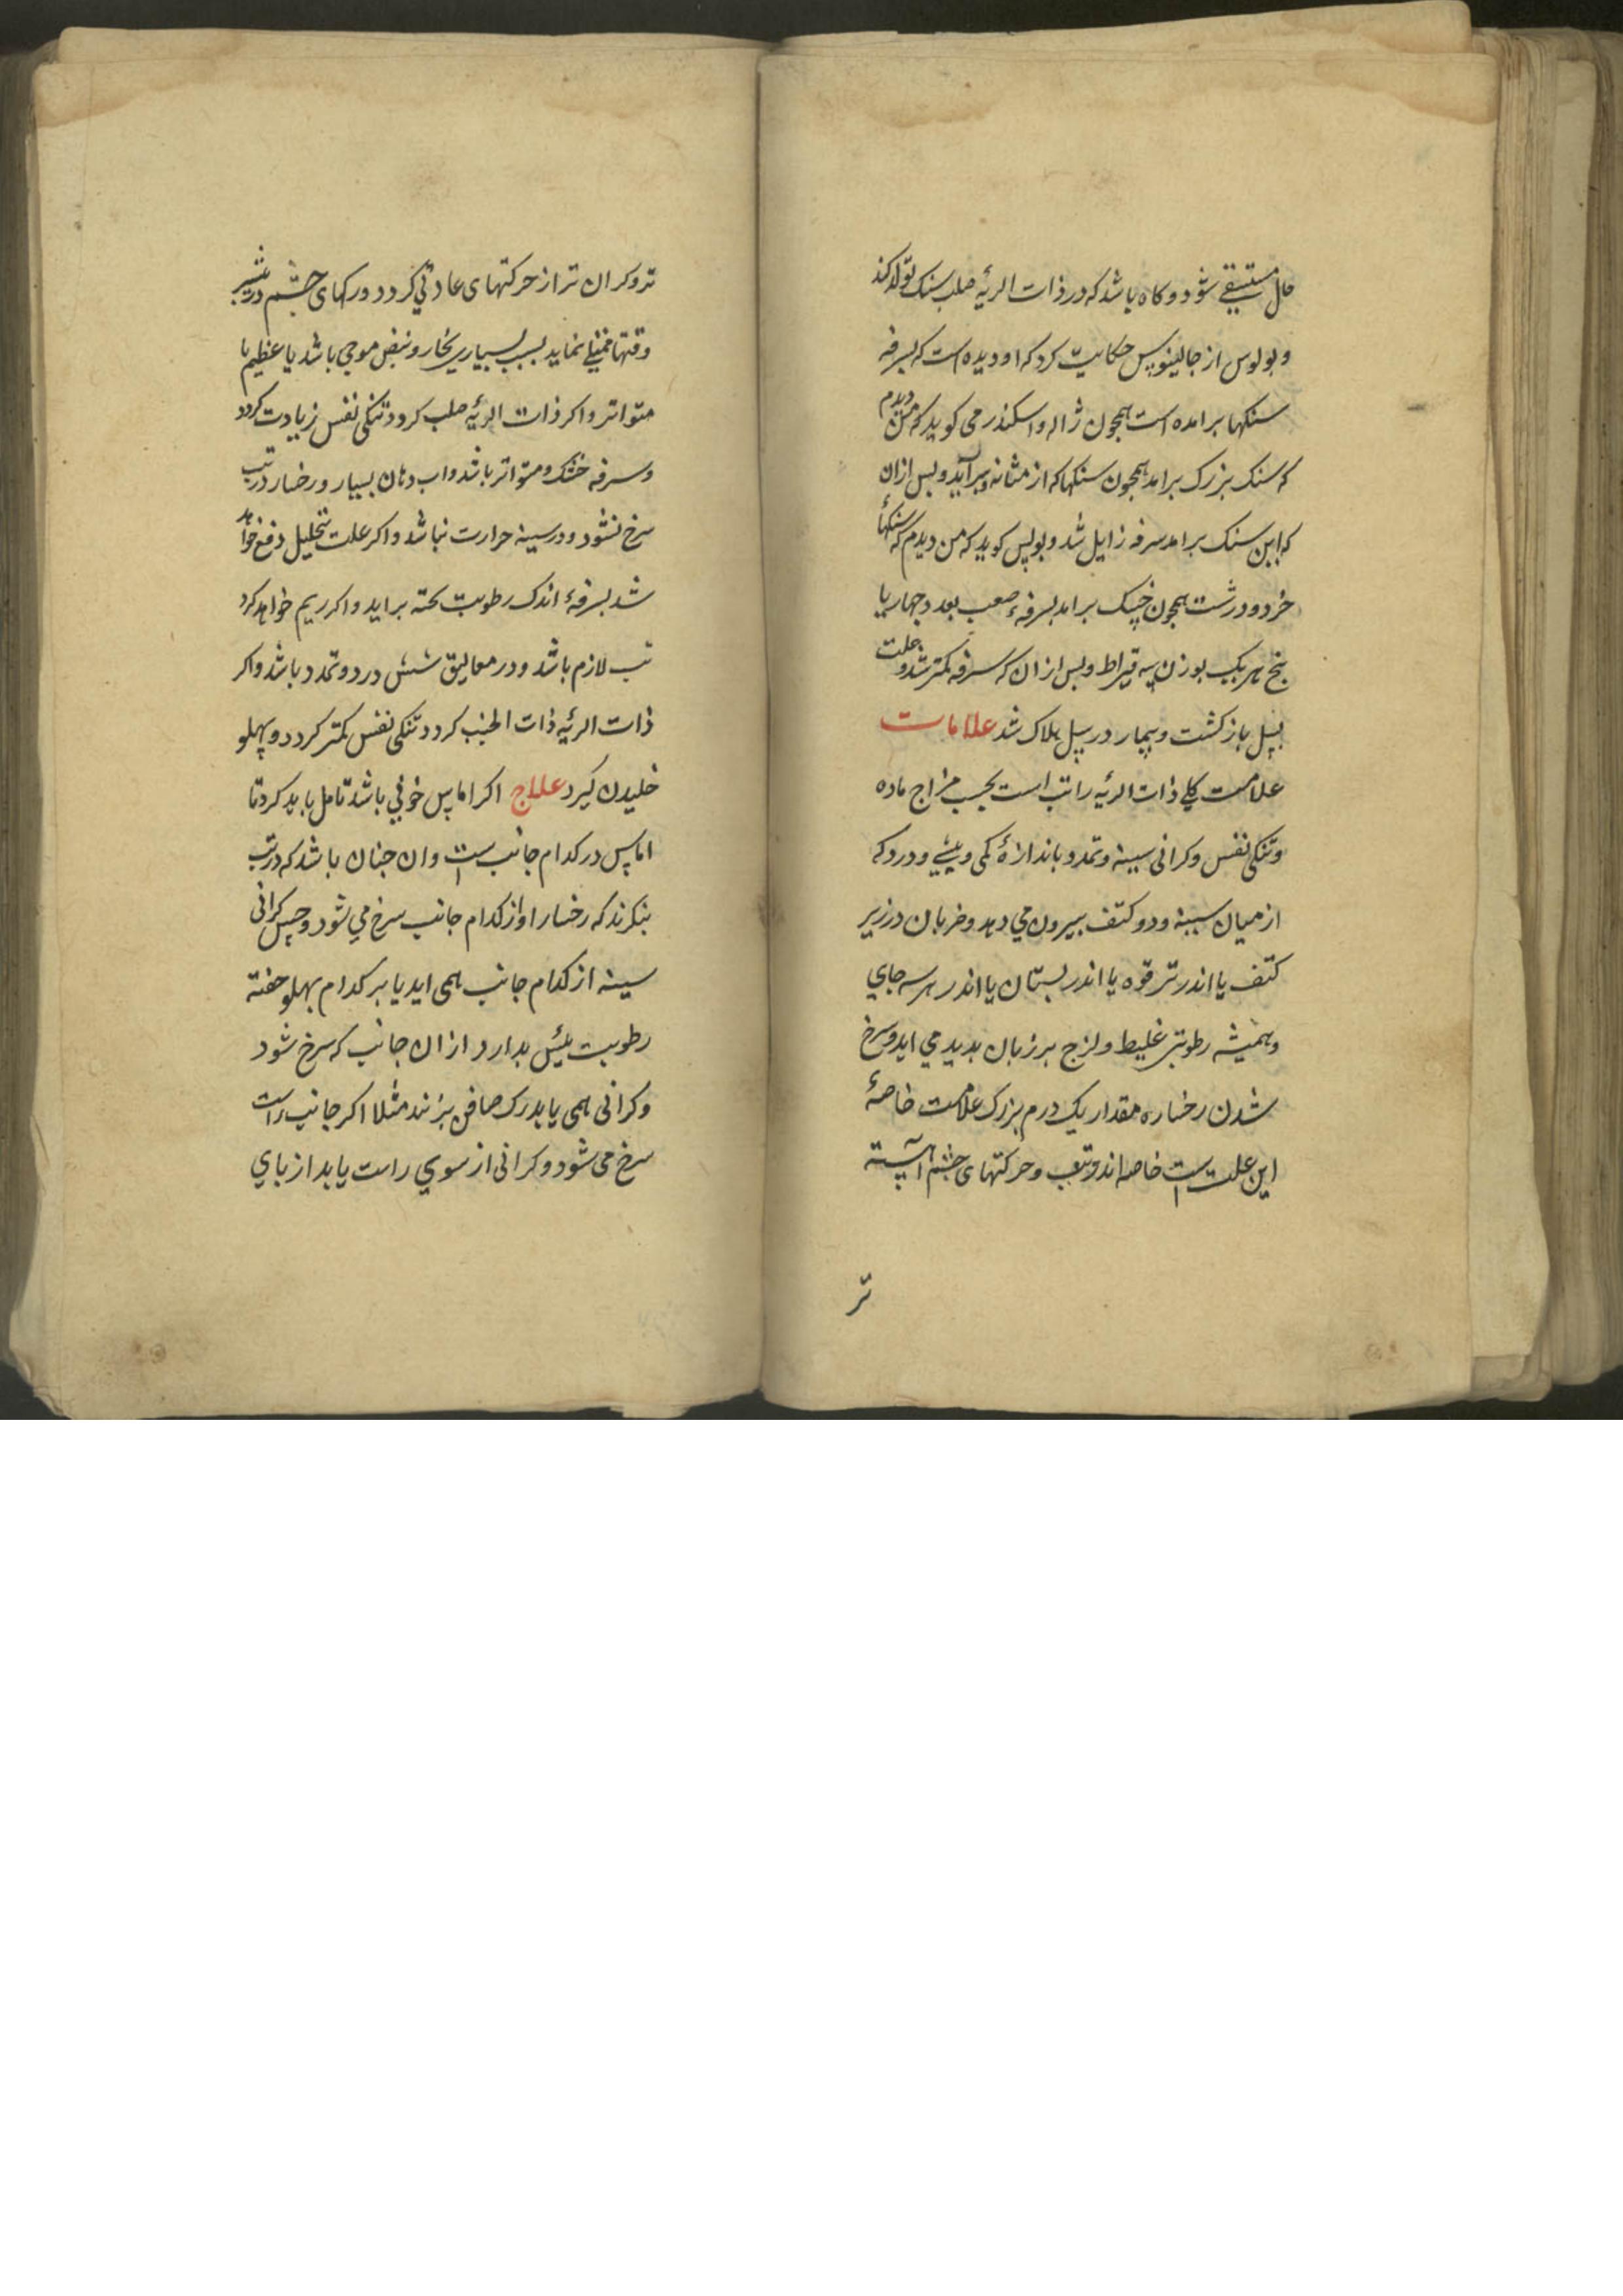 حال مستسقی شود و کاه باشد که در ذات الریه صلب سنک تولد کند
و بولوس از جالینوس حکایت کرد که او دیده است که بسرفه
سنکها برامده است همچون ژاله و اسکندر می کوید که من دیدم
که سنک بزرک برامد همچون سنکها که از مثانه براید و بس ازان
که این سنک برامد سرفه زایل شد و بولس کوید که من دیدم که سنکهاء
خرد و درشت همچون خسک برامد بسرفهٔ صعب بعدد جهار یا
بنج هر یک بوزن سه قیراط و بس ازان که سرفه کمتر شد و علت
بسل باز کشت و بیمار در سل هلاک شد علامات
علامت کلی ذات الریه را تب است بحسب مزاج ماده
و تنکی نفس و کرانی سینه و تمدد باندازهٔ کمی و بیشی و درد که
از میان سینه و دو کتف بیرون می دهد و ضربان در زیر
کتف یا اندر ترقوه یا اندر بستان یا اندر هر سه جای
و همیشه رطوبتی غلیط و لزج بر زبان بدید می اید و سرخ
شدن رخساره مقدار یک درم بزرک علامت خاصهٔ
این علت است خاصه اندر تب و حرکتهای چشم آهسته
تر
تر و کران تر از حرکتهای عادتی کردد و رکهای چشم در بیشتر
وقتها ممتلی نماید بسبب بسیاری بخار و نبض موجی باشد یا عظیم یا
متواتر و اکر ذات الریه صلب کردد تنکی نفس زیادت کردد
و سرفه خشک و متواتر باشد و اب دهان بسیار و رخسار در تب
سرخ نشود و در سینه حرارت نباشد و اکر علت بتحلیل دفع خواهد
شد بسرفهٔ اندک رطوبت بخته براید و اکر ریم خواهد کرد
تب لازم باشد و در معالیق شش درد و تمدد باشد و اکر
ذات الریه ذات الجنب کردد تنکی نفس کمتر کردد و بهلو
خلیدن کیرد علاج اکر اماس خونی باشد تامل باید کرد تا
اماس در کدام جانب است و ان جنان باشد که در تب
بنکرند که رخسار او از کدام جانب سرخ می شود و حس کرانی
سینه از کدام جانب همی اید یا بر کدام بهلو خفته
رطوبت بیش بدارد از ان جانب که سرخ شود
و کرانی همی یابد رک صافن بزنند مثلا اکر جانب راست
سرخ می شود و کرانی از سوی راست یابد از بای